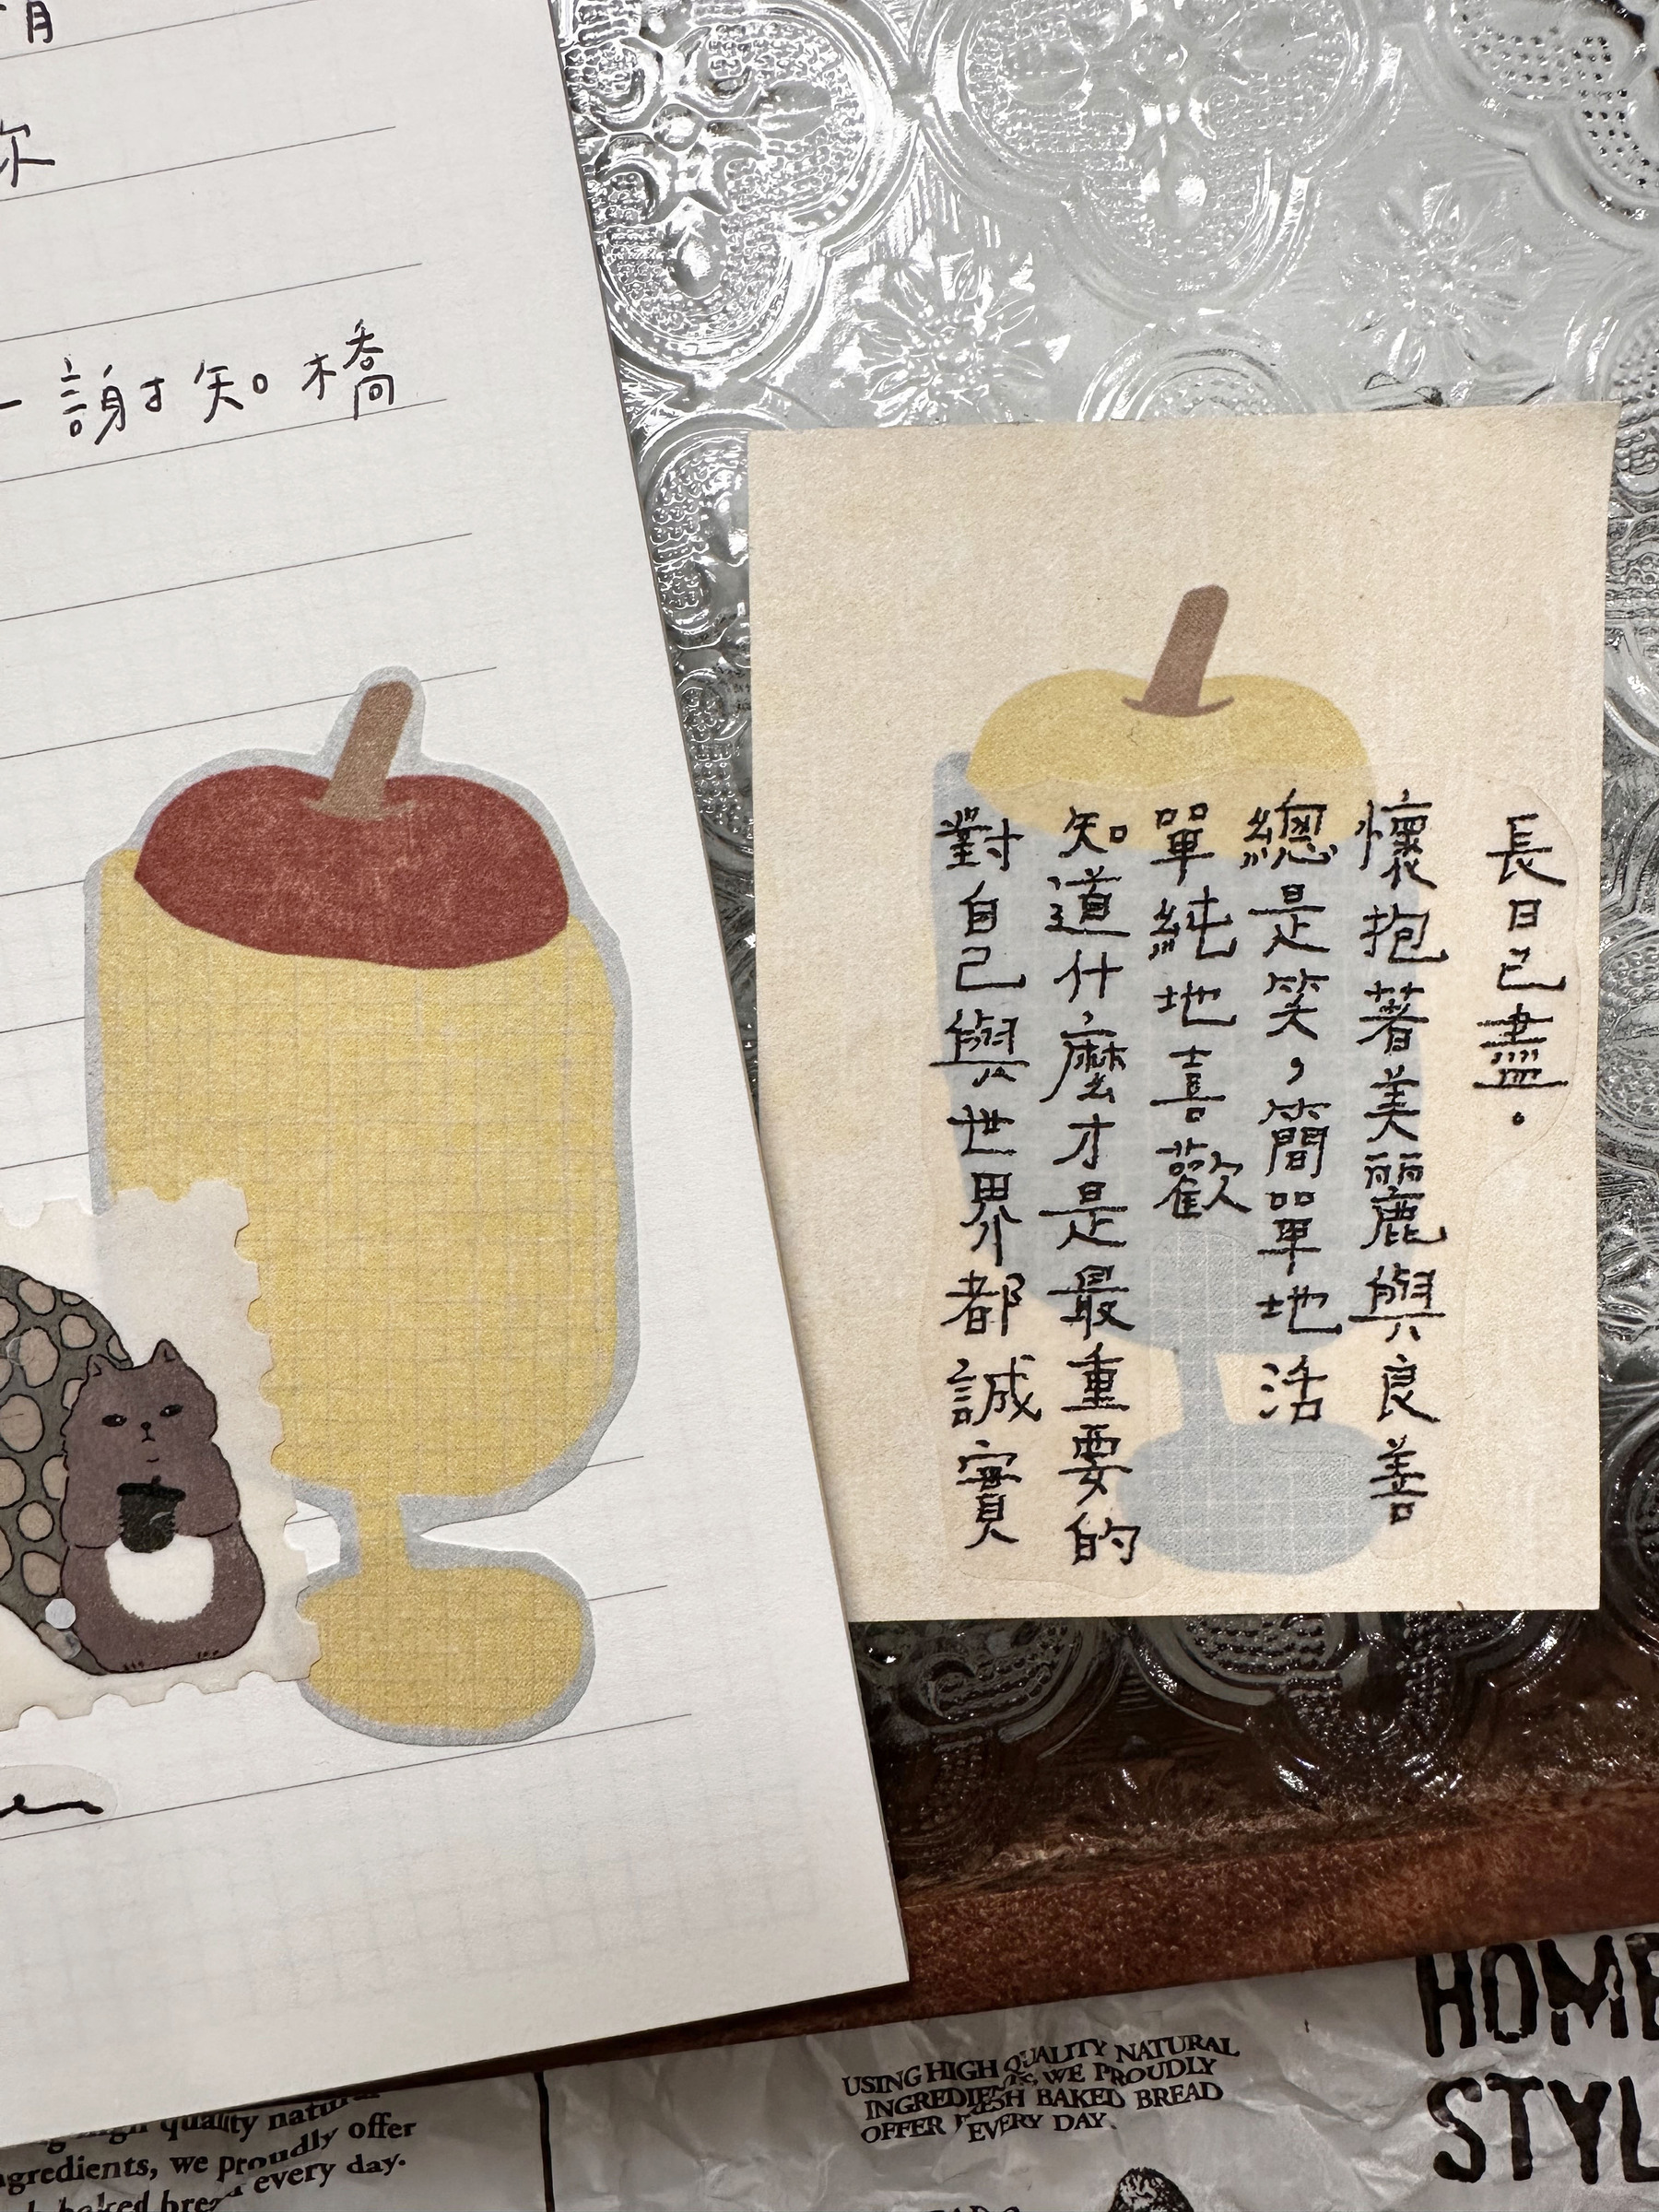 月
你
一 謝知橋
長日已盡。
懷抱著美麗與良善
總是笑，簡單地活
單純地喜歡
知道什麼才是最重要的
對自己與世界都誠實
HOME
STYL
USING HIGH QUALITY NATURAL
INGREDIENTS, WE PROUDLY
OFFER FRESH BAKED BREAD
EVERY DAY.
high quality natural
ngredients, we proudly offer
baked bread every day.